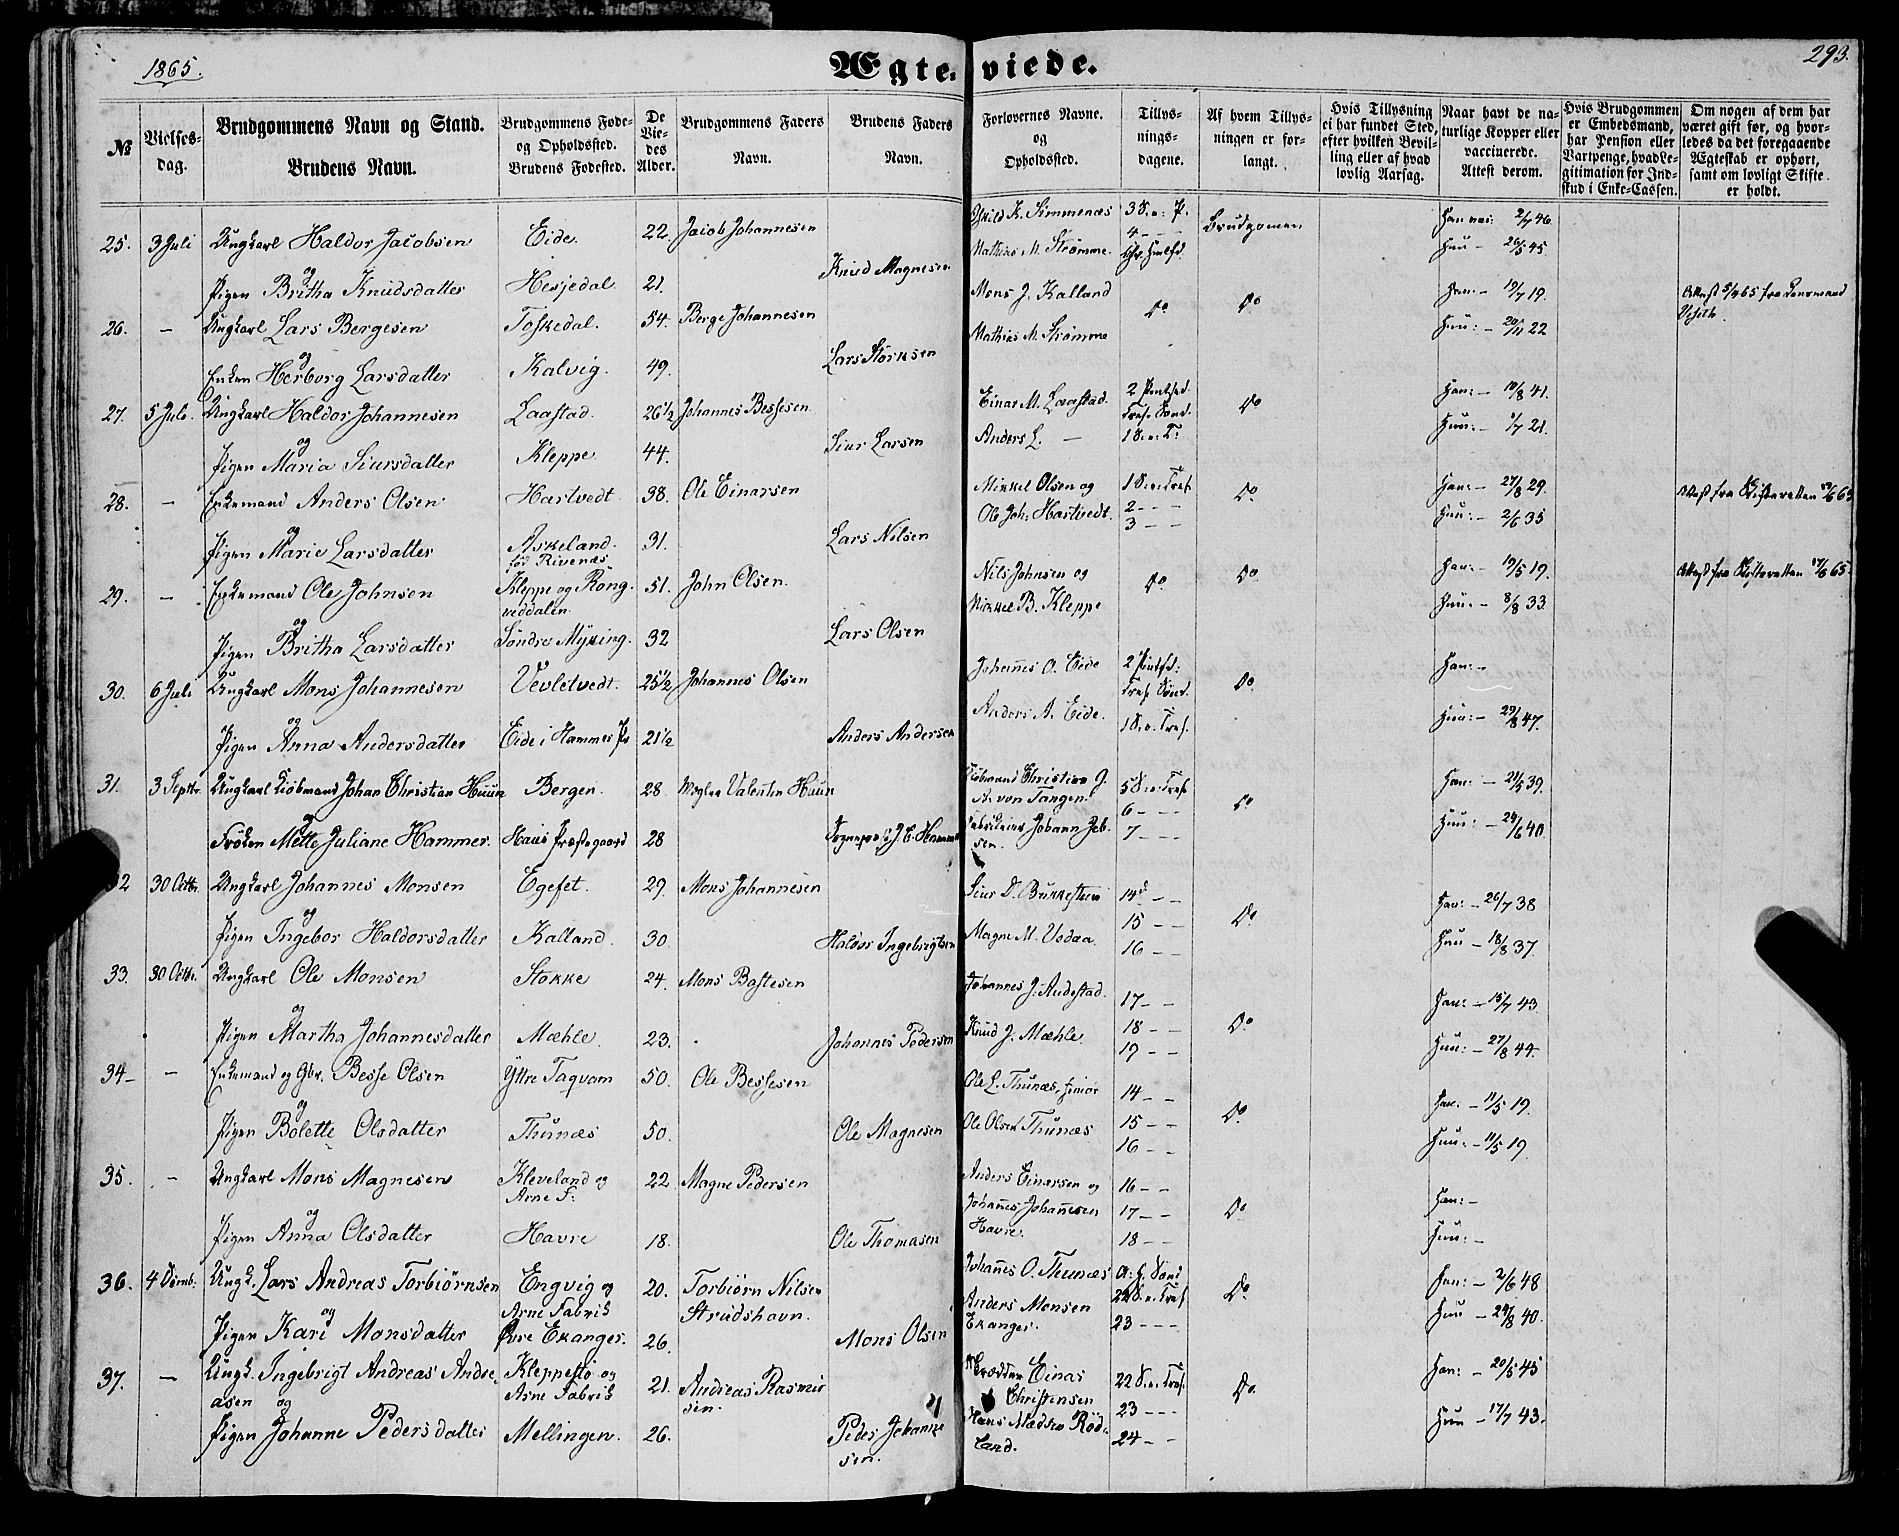 1865.
Ægteviede.
293.
№
Vielses-
dag.
Brudgommens Navn og Stand.
Brudens Navn.
Brudgommens Føde-
og Opholdssted.
Brudens Fødested.
De
Vie-
des
Alder.
Brudgommens Faders
Navn.
Brudens Faders
Navn.
Forlovernes Navne.
og
Opholdssted.
Tillys-
nings-
dagene.
Af hvem Tillys-
ningen er for-
langt.
Hvis Tillysning
ei har fundet Sted,
efter hvilken Bevil-
ling eller af hvad
lovlig Aarsag.
Naar havt de na-
turlige Kopper eller
vaccinerede.
Attest derom.
Hvis Brudgommen
er Embedsmand,
har Pension eller
Vartpenge, hvad Le-
gitimation for Ind-
skud i Enke-Cassen.
Om nogen af dem har
været gift før, og hvor-
ledes da det foregaaende
Ægteskab er ophørt,
samt om lovligt Skifte
er holdt.
25. 3 Juli Ungkarl Haldor Jacobsen Eide. 22. Jacob Johannesen K. Simmenæs 3 S. e. P. Brudgomen 2/7 46.
og Mathias M. Strømme. 4 - - - 26/5 45
Pigen Britha Knudsdatter Hesjedal. 21. Knud Magnesen
26. - Ungkarl Lars Bergesen Toskedal. 54. Berge Johannesen Mons J. Kalland Do Do Han: - 19/7 19. Attest 5/7 65 fra Lensmand
og Mathias M. Strømme Hun: - 20/11 22
Enken Herborg Larsdatter Kalvig. 49. Lars Størksen
27. 5 Juli. Ungkarl Haldor Johannesen Laastad. 26 1/2 Johannes Bessesen. Einar M. Laastad. 2 Do Han: - 10/8 41.
og Anders L. - 1 S. e. Tr: Hun: - 1/7 21.
Pigen Maria Siursdatter Kleppe 44. Siur Larsen
28. - Enkemand Anders Olsen Hartvedt. 38. Ole Einarsen Mikkel Olsen og 1 S. e. Tref. Do Han: - 27/8 29. Attest fra Skifteretten
og Ole Joh: Hartvedt. 2 - - - 3 - - Hun: - 2/6 35
Pigen Marie Larsdatter Askeland. 31. Lars Nilsen
før Rivenæs
29. - Enkemand Ole Johnsen Kleppe og Rong- 51. John Olsen. Nils Johnsen og Do Do Han: - 19/5 19. Attest fra Skifteretten 17/6 65.
veddalen. Mikkel B. Kleppe Hun: - 8/8 33.
og
Pigen Britha Larsdatter Søndre Myking. 32 Lars Olsen
30. 6 Juli Ungkarl Mons Johannesen Vevletvedt. 25 1/2 Johannes Olsen Johannes O. Eide 2 Do Han: -
og Anders A. Eide. 1 S. e. Tref. Hun: - 29/8 47.
Pigen Anna Andersdatter Eide i Hammer Pr 21 1/2 Anders Andersen
31. 3 Septbr. Ungkarl Kiøbmand Johan Christian Huun Bergen. 28. Mægler Valentin Huun Kiøbmand Christian J. 5 S. e. Tref Do Han: - 21/5 39.
og A. von Tangen. 6 - - -
Frøken Mette Juliane Hammer. Haus Præstegaard 28 Sognepræst J. C. Hammer Johann Jeb- 7 - - - Hun: - 24/6 40.
sen.
32 30 Octbr. Ungkarl Johannes Monsen Egefet. 29. Mons Johannesen Siur D. Bukkesteen 14d - - Do Han: - 26/7 38
og 15 - -
Pigen Ingebor Haldorsdatter Kalland. 30. Haldor Ingebrigtsen Magne M. Usdaa. 16 - - Hun - 18/8 37.
33. 30 Octbr. Ungkarl Ole Monsen Stokke 24. Mons Bastesen Johannes J. Andestad. 17 - - Do Han: - 15/7 43.
og 18 - -
Pigen Martha Johannesdatter Mæhle. 23. Johannes Pedersen Knud J. Mæhle 19 - - Hun: - 27/8 44.
34 - - Enkemand og Gbr. Besse Olsen Yttre Taqvam 50. Ole Bessesen Ole L. Thunæs, junior 14 - - Do Han: - 11/5 19.
og 15 - -
Pigen Bolette Olsdatter Thunæs 50. Ole Magnesen Ole Olsen Thunæs 16 - - Hun: - 11/5 19.
35. - Ungkarl Mons Magnesen Kleveland og 22. Magne Pedersen Anders Einarsen og 16 - - Do Han: -
Arne F: Johannes Johannesen 17 - -
og
Pigen Anna Olsdatter Havre 18. Ole Thomasen Havre. 18 - - Hun: -
36. 4 Decmb. Ungk. Lars Andreas Torbiørnsen Engvig og 20. Torbiørn Nilsen Johannes O. Thunæs Do Han: - 2/6 48
og Arne Fabrik Strudshavn. Anders Monsen 22 S. e. Tref
Pigen Kari Monsdatter Øvre Ekanger. 26. Mons Olsen Ekanger. 23 - - - Hun - 24/8 40.
37. - Ungk. Ingebrigt Andreas Andre- Kleppestø og 21. Andreas Rasmus- Skrædder Einar 22 S. e. Tref. Do. Han: - 20/5 45
asen og Arne Fabrik sen. Christensen 23 - - -
Pigen Johanne Pedersdatter Mellingen. 26. Peder Johanne- Hans Madsen Rød- 24 - - Hun - 17/7 43.
sen. land.